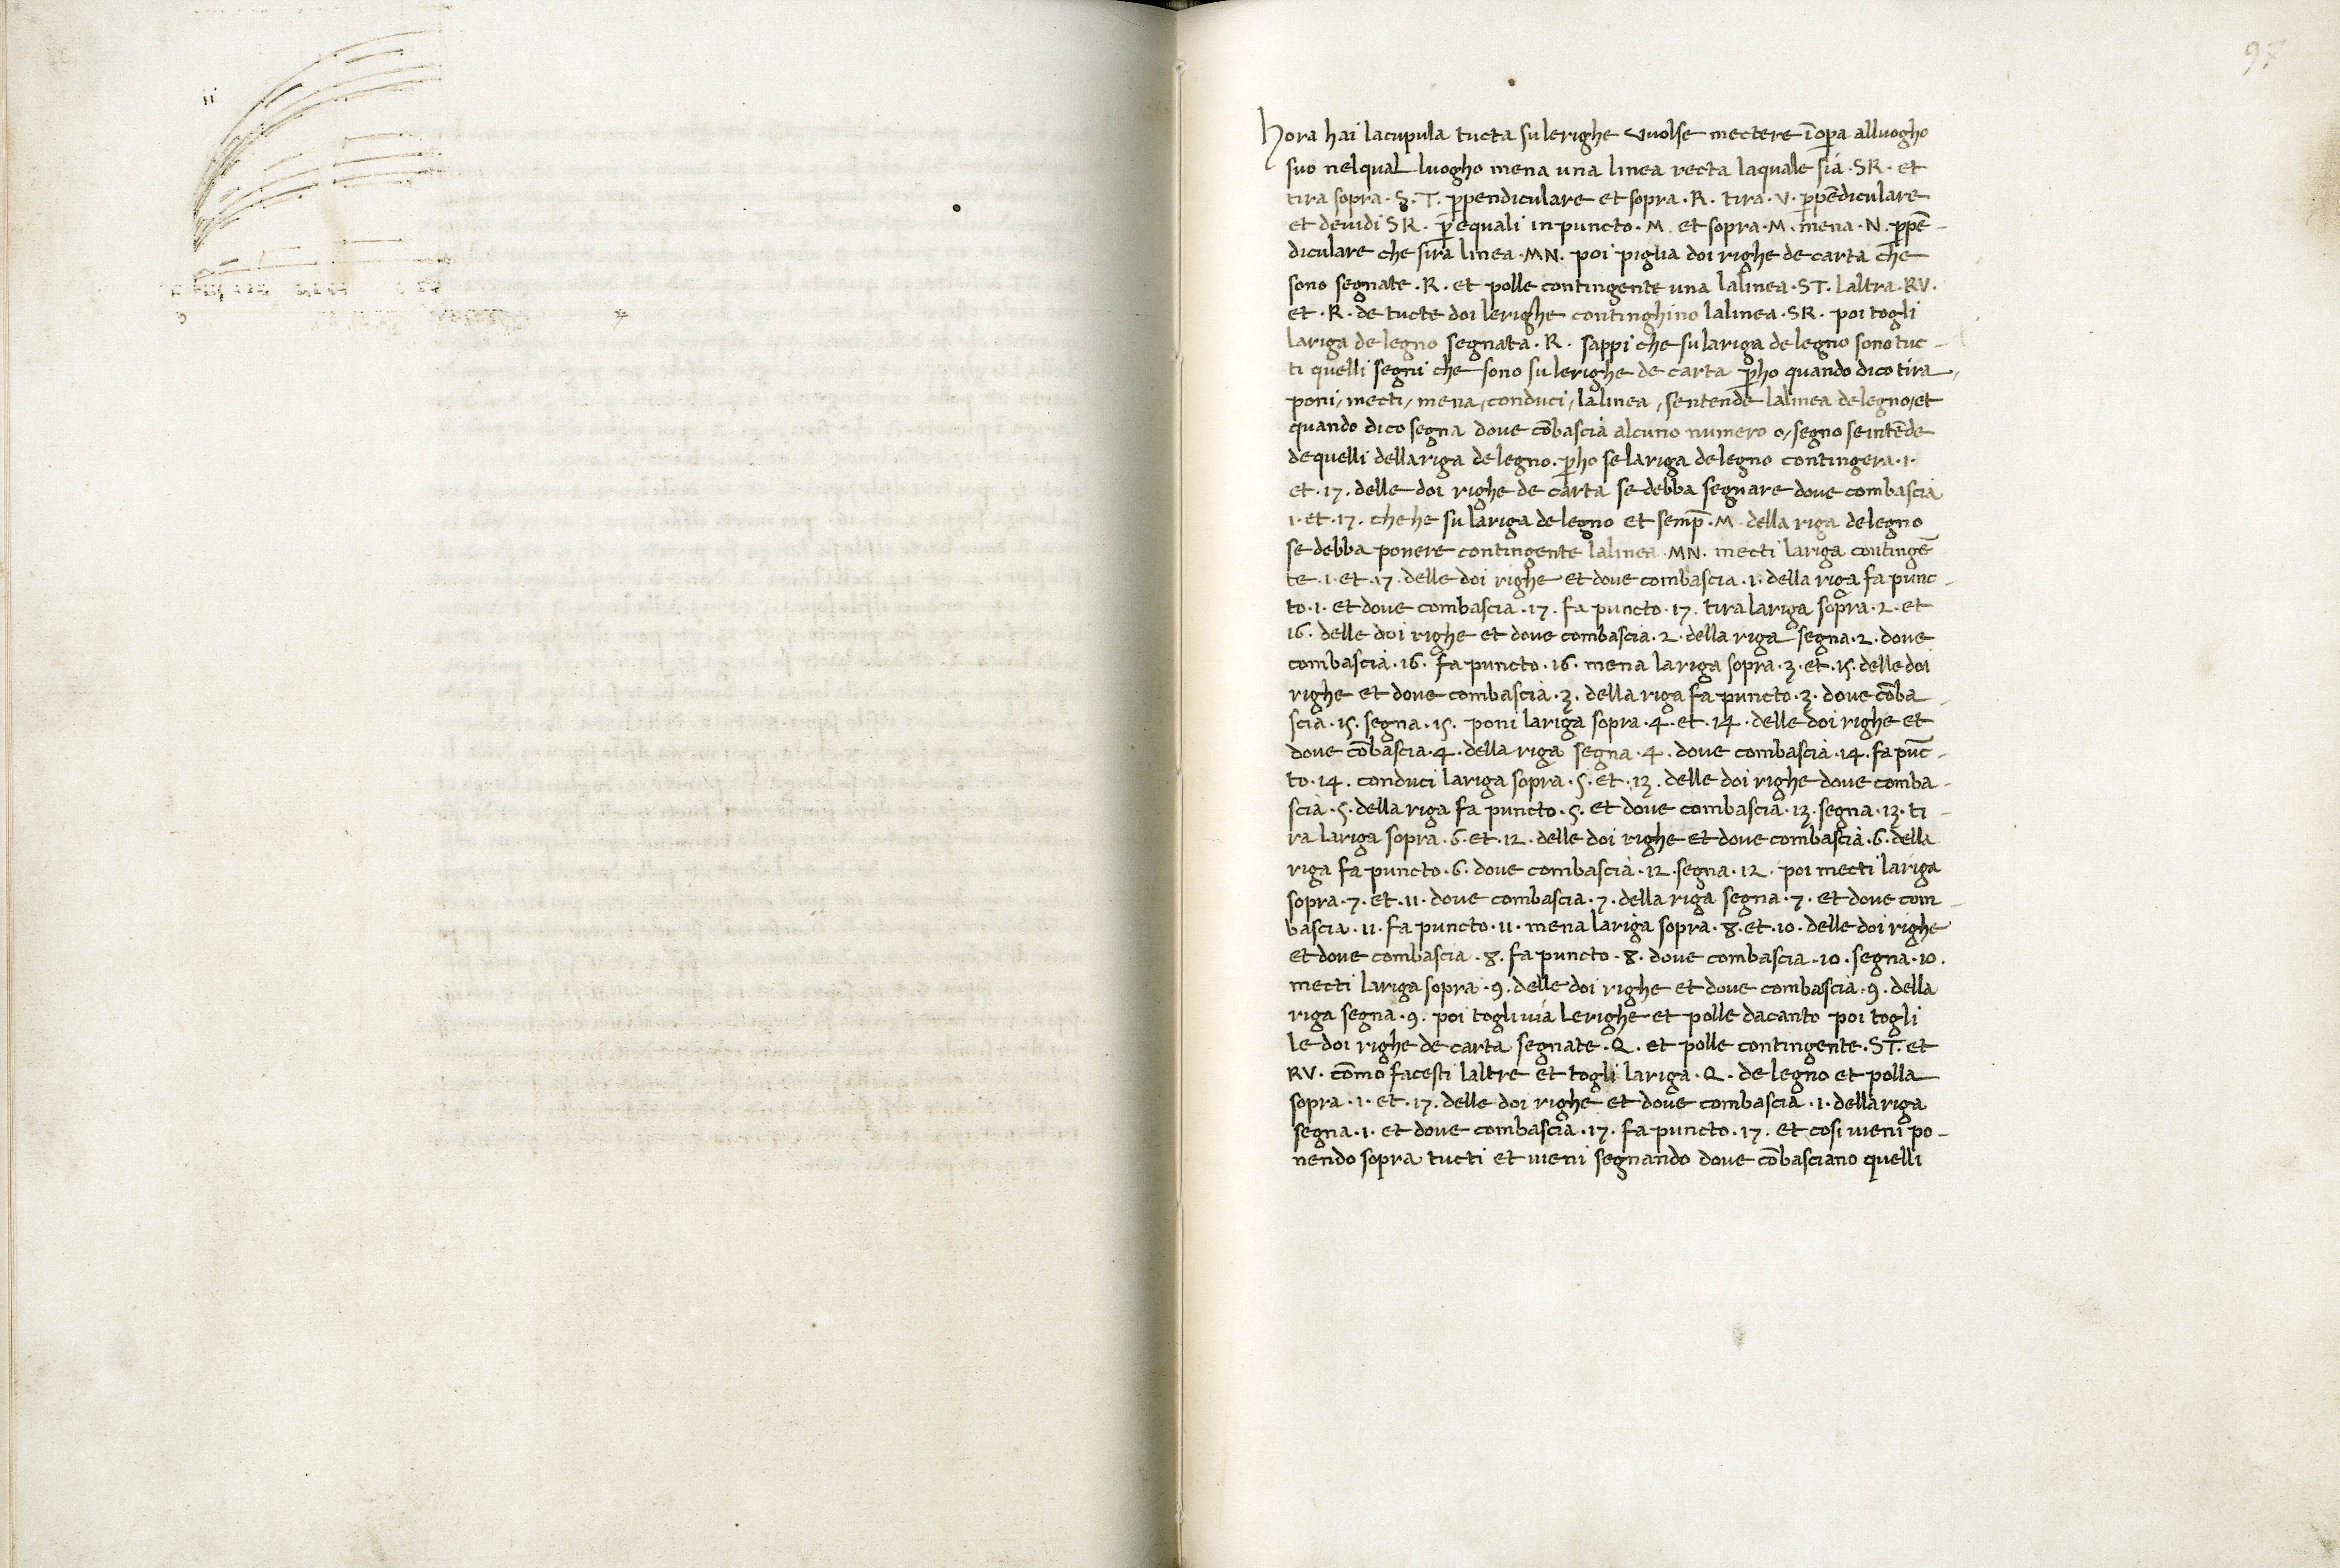 97
Hora hai lacupula tucta su lerighe vuolse mectere īopa alluogho
suo nelqual luogho mena una linea recta laquale sia · SR · et
tira sopra · S · T · ppendiculare et sopra · R · tira · V · ppēdiculare
et deuidi SR · p equali in puncto · M · et sopra · M · mena · N · ppē-
diculare che sira linea · MN · poi piglia doi righe de carta che
sono segnate · R · et polle contingente una lalinea · ST · laltra · RV ·
et · R · de tucte doi lerighe continghino lalinea · SR · poi togli
lariga de legno segnata · R · sappi che su lariga de legno sono tuc-
ti quelli segni che sono su lerighe de carta pho quando dico tira,
poni, mecti, mena, conduci, lalinea, sentende lalinea de legno, et
quando dico segna dove cōbascia alcuno numero o, segno se intēde
de quelli dellariga de legno · pho se lariga de legno contingera · 1 ·
et · 17 · delle doi righe de carta se debba segnare dove combascia
1 · et · 17 · che he su lariga de legno et semp · M · della riga de legno
se debba ponere contingente lalinea · MN · mecti lariga contingē
te · 1 · et · 17 · delle doi righe et dove combascia · 1 · della riga fa punc-
to · 1 · et dove combascia · 17 · fa puncto · 17 · tira lariga sopra · 2 · et
16 · delle doi righe et dove combascia · 2 · della riga segna · 2 · dove
combascia · 16 · fa puncto · 16 · mena lariga sopra · 3 · et · 15 · delle doi
righe et dove combascia · 3 · della riga fa puncto · 3 · dove cōba-
scia · 15 · segna · 15 · poni lariga sopra · 4 · et · 14 · delle doi righe et
dove cōbascia · 4 · della riga segna · 4 · dove combascia · 14 · fa pūc-
to · 14 · conduci lariga sopra · 5 · et · 13 · delle doi righe dove comba-
scia · 5 · della riga fa puncto · 5 · et dove combascia · 13 · segna · 13 · ti-
ra lariga sopra · 6 · et · 12 · delle doi righe et dove combascia · 6 · della
riga fa puncto · 6 · dove combascia · 12 · segna · 12 · poi mecti lariga
sopra · 7 · et · 11 · dove combascia · 7 · della riga segna · 7 · et dove com-
bascia · 11 · fa puncto · 11 · mena lariga sopra · 8 · et · 10 · delle doi righe
et dove combascia · 8 · fa puncto · 8 · dove combascia · 10 · segna · 10 ·
mecti lariga sopra · 9 · delle doi righe et dove combascia · 9 · della
riga segna · 9 · poi togli via lerighe et polle dacanto poi togli
le doi righe de carta segnate · Q · et polle contingente · ST · et
RV · cōmo facesti laltre et togli lariga · Q · de legno et polla
sopra · 1 · et · 17 · delle doi righe et dove combascia · 1 · dellariga
segna · 1 · et dove combascia · 17 · fa puncto · 17 · et cosi vieni po-
nendo sopra tucti et vieni segnando dove cōbasciano quelli